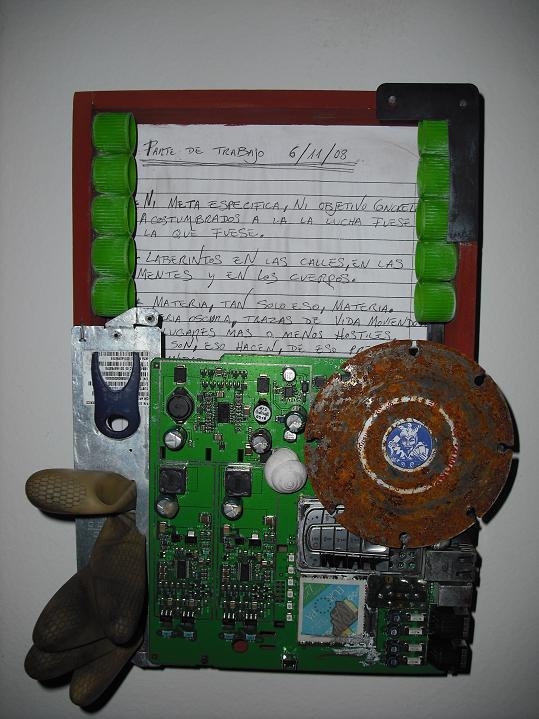 PARTE DE TRABAJO 6/11/08
- NI META ESPECIFICA, NI OBJETIVO CONCRET
ACOSTUMBRADOS A LA LA LUCHA FUESE
LA QUE FUESE.
- LABERINTOS EN LAS CALLES, EN LAS
MENTES Y EN LOS CUERPOS.
MATERIA, TAN SOLO ESO, MATERIA.
ERIA OSCURA, TRAZAS DE VIDA MOVIENDO
LUGARES MAS O MENOS HOSTILES
SON, ESO HACEN, DE ESO